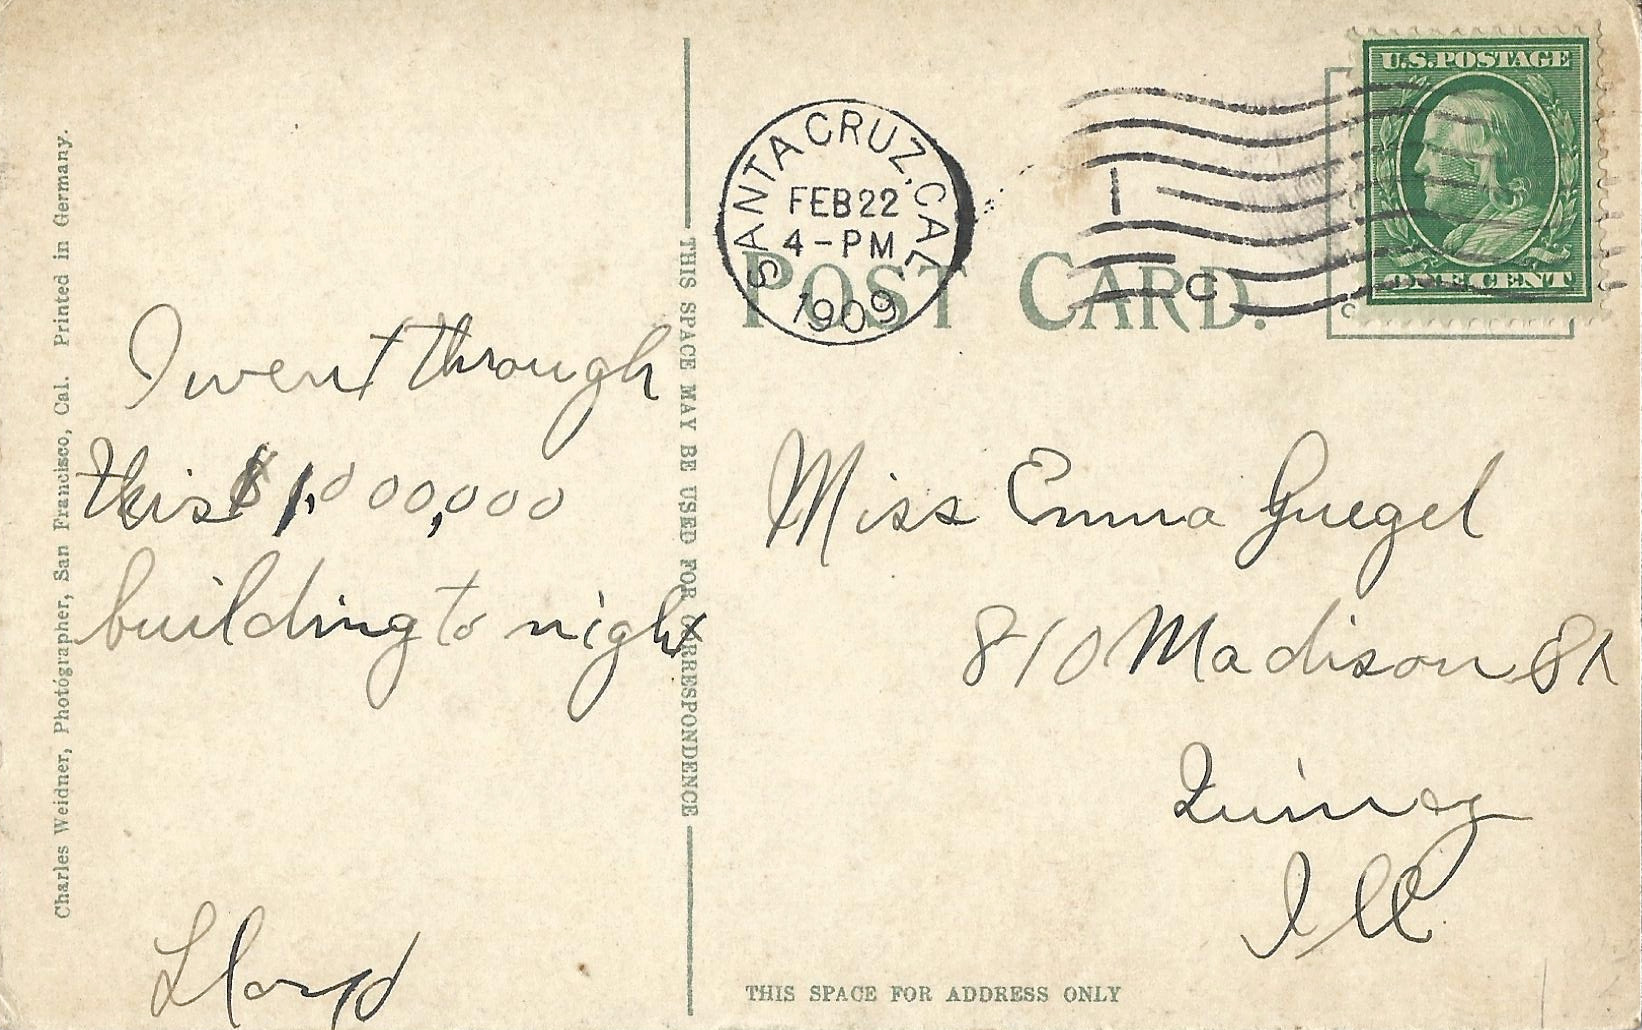 Charles Weidner, Photographer, San Francisco, Cal. Printed in Germany.
I went through
this $1,000,000
building to night
Lloyd
THIS SPACE MAY BE USED FOR CORRESPONDENCE
SANTA CRUZ, CAL.
FEB 22
4-PM
1909
U.S. POSTAGE
ONE CENT
POST CARD.
Miss Emma Guegel
810 Madison St
Quincy
Ill
THIS SPACE FOR ADDRESS ONLY